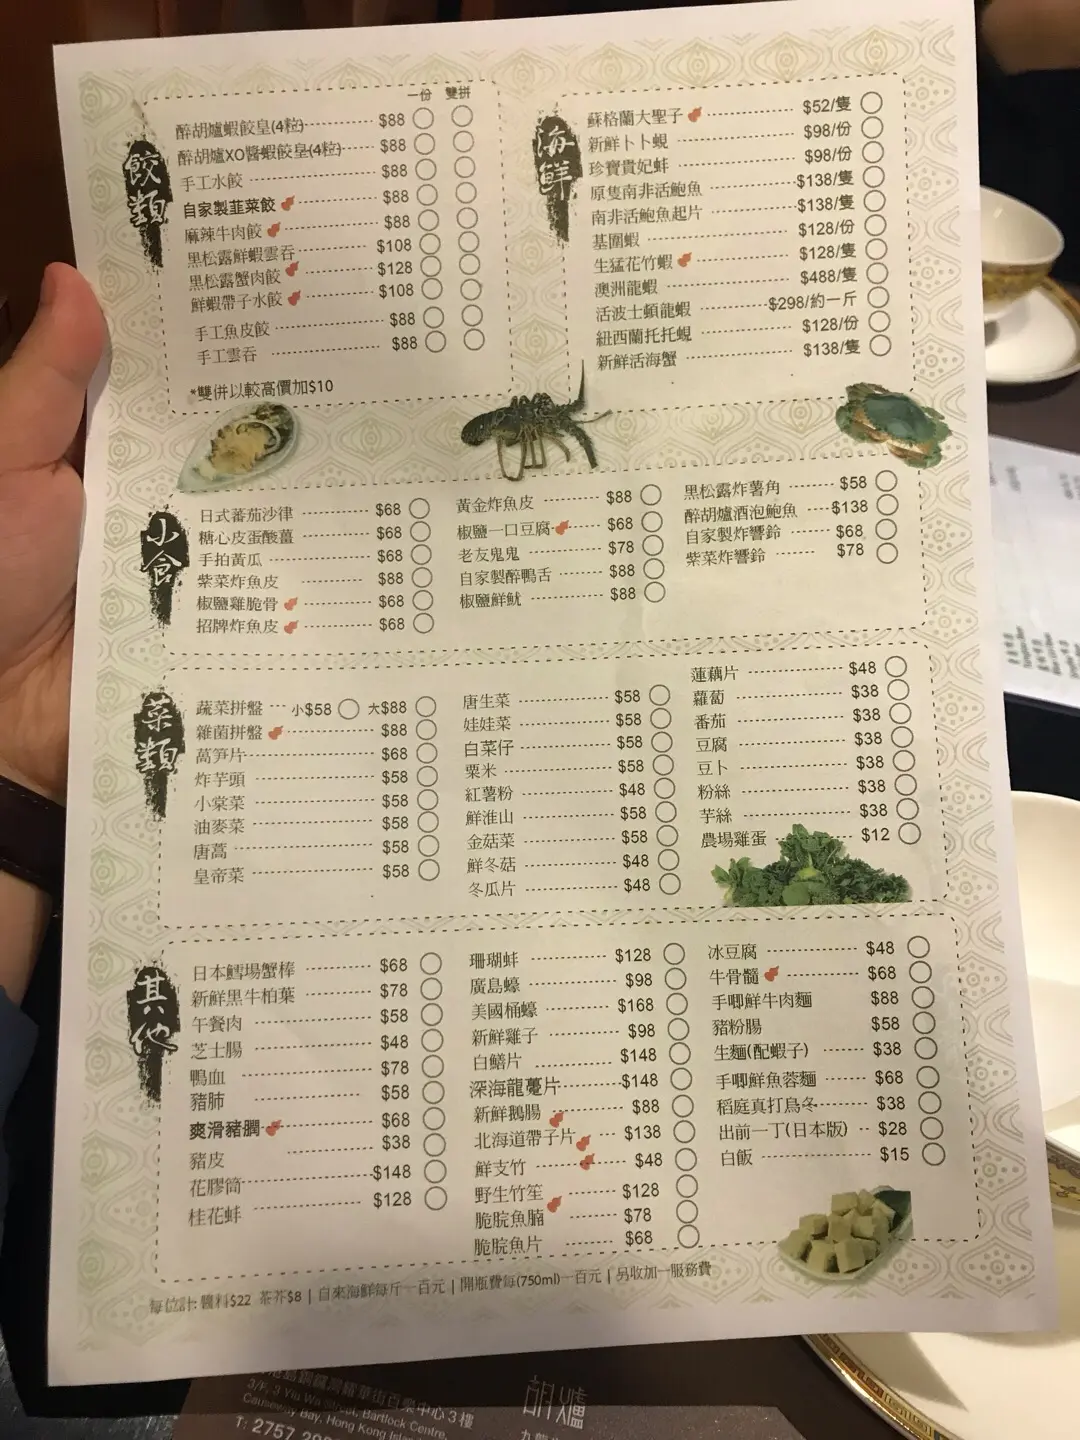 餃類
一份 雙拼
醉胡爐蝦餃皇(4粒) $88
醉胡爐XO醬蝦餃皇(4粒) $88
手工水餃 $88
自家製韮菜餃 $88
麻辣牛肉餃 $88
黑松露鮮蝦雲吞 $108
黑松露蟹肉餃 $128
鮮蝦帶子水餃 $108
手工魚皮餃 $88
手工雲吞 $88
*雙併以較高價加$10
海鮮
蘇格蘭大聖子 $52/隻
新鮮卜卜蜆 $98/份
珍寶貴妃蚌 $98/份
原隻南非活鮑魚 $138/隻
南非活鮑魚起片 $138/隻
基圍蝦 $128/份
生猛花竹蝦 $128/隻
澳洲龍蝦 $488/隻
活波士頓龍蝦 $298/約一斤
紐西蘭托托蜆 $128/份
新鮮活海蟹 $138/隻
小食
日式蕃茄沙律 $68
糖心皮蛋酸薑 $68
手拍黃瓜 $68
紫菜炸魚皮 $88
椒鹽雞脆骨 $68
招牌炸魚皮 $68
黃金炸魚皮 $88
椒鹽一口豆腐 $68
老友鬼鬼 $78
自家製醉鴨舌 $88
椒鹽鮮魷 $88
黑松露炸薯角 $58
醉胡爐酒泡鮑魚 $138
自家製炸響鈴 $68
紫菜炸響鈴 $78
菜類
蔬菜拼盤 小$58 大$88
雜菌拼盤 $88
萵笋片 $68
炸芋頭 $58
小棠菜 $58
油麥菜 $58
唐蒿 $58
皇帝菜 $58
唐生菜 $58
娃娃菜 $58
白菜仔 $58
粟米 $58
紅薯粉 $48
鮮淮山 $58
金菇菜 $58
鮮冬菇 $48
冬瓜片 $48
蓮藕片 $48
蘿蔔 $38
番茄 $38
豆腐 $38
豆卜 $38
粉絲 $38
芋絲 $38
農場雞蛋 $12
其他
日本鱈場蟹棒 $68
新鮮黑牛柏葉 $78
午餐肉 $58
芝士腸 $48
鴨血 $78
豬肺 $58
爽滑豬膶 $68
豬皮 $38
花膠筒 $148
桂花蚌 $128
珊瑚蚌 $128
廣島蠔 $98
美國桶蠔 $168
新鮮雞子 $98
白鱔片 $148
深海龍躉片 $148
新鮮鵝腸 $88
北海道帶子片 $138
鮮支竹 $48
野生竹笙 $128
脆脘魚腩 $78
脆脘魚片 $68
冰豆腐 $48
牛骨髓 $68
手唧鮮牛肉麵 $88
豬粉腸 $58
生麵(配蝦子) $38
手唧鮮魚蓉麵 $68
稻庭真打烏冬 $38
出前一丁(日本版) $28
白飯 $15
每位計: 醬料$22 茶芥$8 | 自來海鮮每斤一百元 | 開瓶費每(750ml)一百元 | 另收加一服務費
港島銅鑼灣耀華街百樂中心3樓
3/F, 3 Yiu Wa Street, Bartlock Centre,
Causeway Bay, Hong Kong Island
T: 2757
胡爐